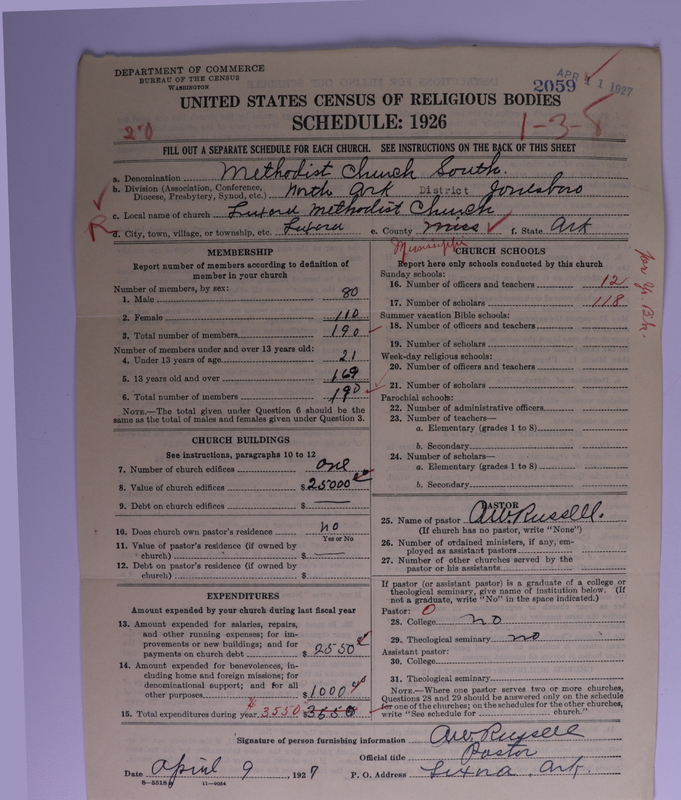 DEPARTMENT OF COMMERCE
BUREAU OF THE CENSUS
WASHINGTON
APR 11 1927
2059
UNITED STATES CENSUS OF RELIGIOUS BODIES
SCHEDULE: 1926
1-3-8
FILL OUT A SEPARATE SCHEDULE FOR EACH CHURCH. SEE INSTRUCTIONS ON THE BACK OF THIS SHEET
a. Denomination Methodist Church South.
b. Division (Association, Conference, Diocese, Presbytery, Synod, etc.) North Ark District Jonesboro
c. Local name of church Luxora Methodist Church
d. City, town, village, or township, etc. Luxora e. County Miss f. State Ark
Mississippi
R
MEMBERSHIP
Report number of members according to definition of
member in your church
Number of members, by sex:
1. Male 80
2. Female 110
3. Total number of members 190
Number of members under and over 13 years old:
4. Under 13 years of age 21
5. 13 years old and over 169
6. Total number of members 190
NOTE.—The total given under Question 6 should be the
same as the total of males and females given under Question 3.
CHURCH BUILDINGS
See instructions, paragraphs 10 to 12
7. Number of church edifices one
8. Value of church edifices $25000
9. Debt on church edifices $
10. Does church own pastor's residence no
Yes or No
11. Value of pastor's residence (if owned by
church) $
12. Debt on pastor's residence (if owned by
church) $
EXPENDITURES
Amount expended by your church during last fiscal year
13. Amount expended for salaries, repairs,
and other running expenses; for im-
provements or new buildings; and for
payments on church debt $2550
14. Amount expended for benevolences, in-
cluding home and foreign missions; for
denominational support; and for all
other purposes $1000
15. Total expenditures during year $3550 $3550
CHURCH SCHOOLS
Report here only schools conducted by this church
Sunday schools:
16. Number of officers and teachers 12
17. Number of scholars 118
Summer vacation Bible schools:
18. Number of officers and teachers
19. Number of scholars
Week-day religious schools:
20. Number of officers and teachers
21. Number of scholars
Parochial schools:
22. Number of administrative officers
23. Number of teachers—
a. Elementary (grades 1 to 8)
b. Secondary
24. Number of scholars—
a. Elementary (grades 1 to 8)
b. Secondary
PASTOR
25. Name of pastor A.W. Russell.
(If church has no pastor, write "None")
26. Number of ordained ministers, if any, em-
ployed as assistant pastors
27. Number of other churches served by the
pastor or his assistants
If pastor (or assistant pastor) is a graduate of a college or
theological seminary, give name of institution below. (If
not a graduate, write "No" in the space indicated.)
Pastor: 0
28. College no
29. Theological seminary no
Assistant pastor:
30. College
31. Theological seminary
NOTE.—Where one pastor serves two or more churches,
Questions 28 and 29 should be answered only on the schedule
for one of the churches; on the schedules for the other churches,
write "See schedule for church."
Signature of person furnishing information A.W. Russell
Official title Pastor
Date April 9, 1927 P. O. Address Luxora, Ark.
8—5518a 11—9064